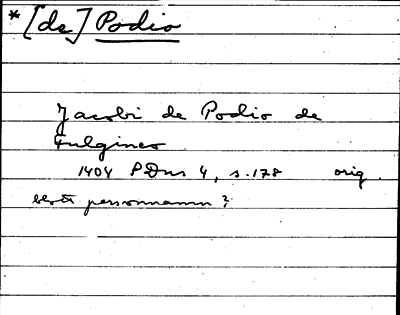 *[de] Podio
Jacobi de Podio de
Fulgineo
1404 PDns 4, s. 178 orig.
blott personnamn?